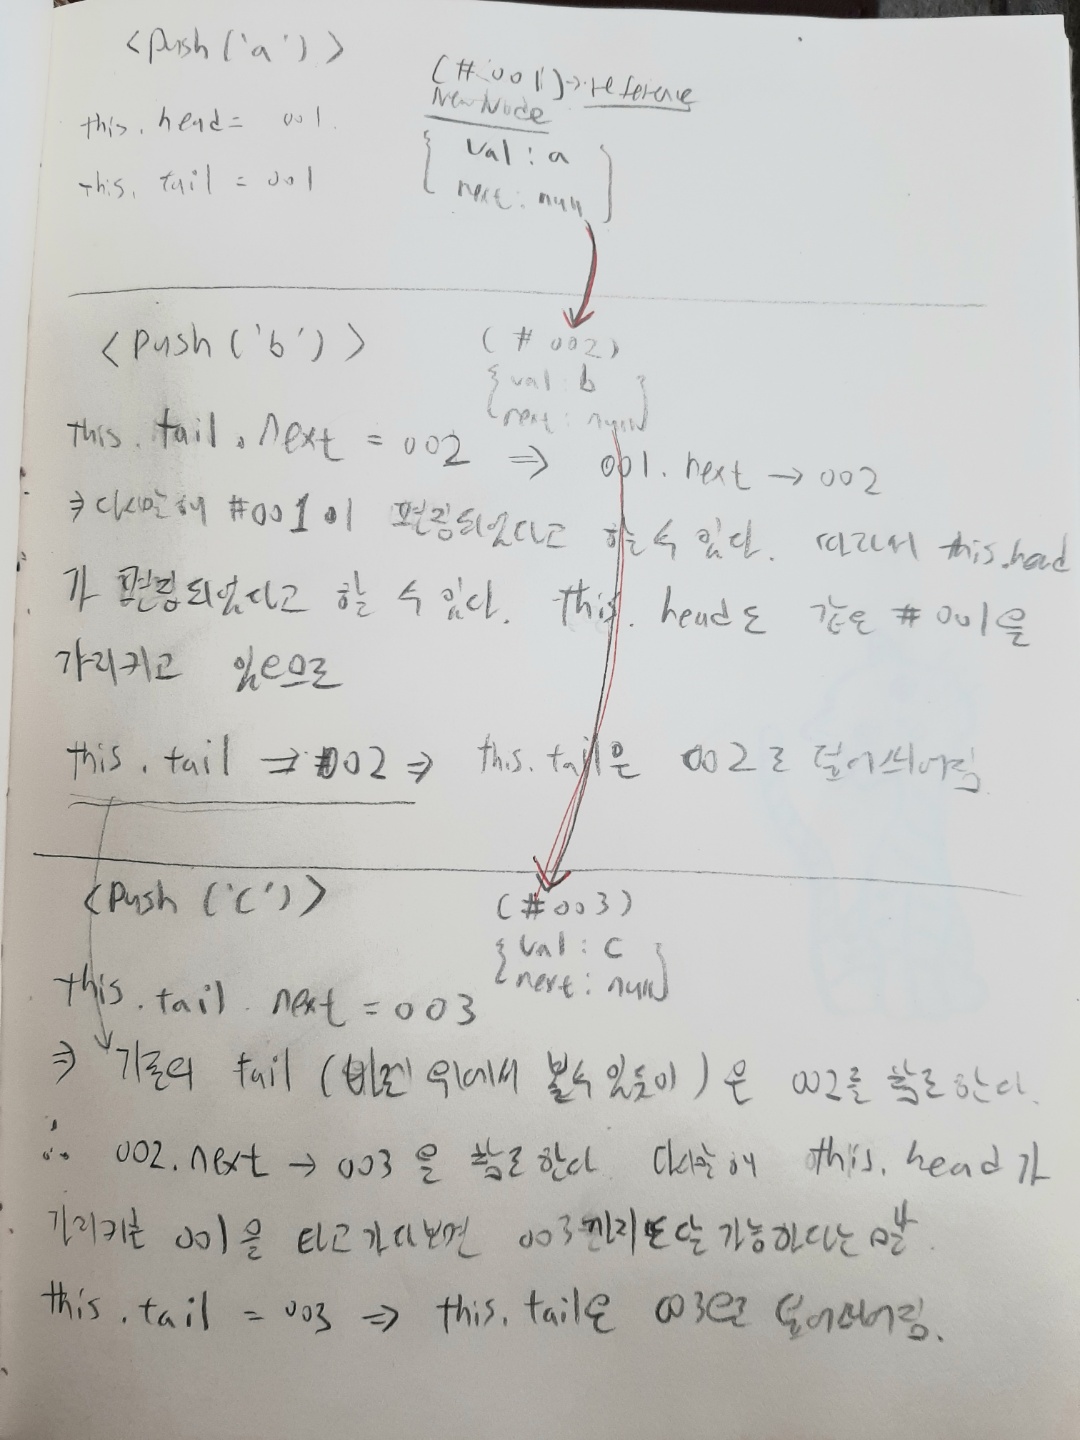 <push('a')>
(#001)→reference
NewNode
this.head = 001.
{ val : a
this.tail = 001
next : null }
<push('b')>
(#002)
{ val : b
next : null }
this.tail.next = 002 ⇒ 001.next → 002
⇒ 다시말해 #001이 변형되었다고 할 수 있다. 따라서 this.head
가 변형되었다고 할 수 있다. this.head도 같은 #001을
가리키고 있으므로
this.tail ⇒ 002 ⇒ this.tail은 002로 덮어씌어짐
<push('c')>
(#003)
{ val : c
next : null }
this.tail.next = 003
⇒ 기존의 tail ( 위에서 볼수 있듯이 )은 002를 참조한다.
∴ 002.next → 003을 참조한다 다시말해 this.head가
가리키는 001을 타고가다보면 003까지 도달 가능하다는 말
this.tail = 003 ⇒ this.tail은 003으로 덮어씌어짐.